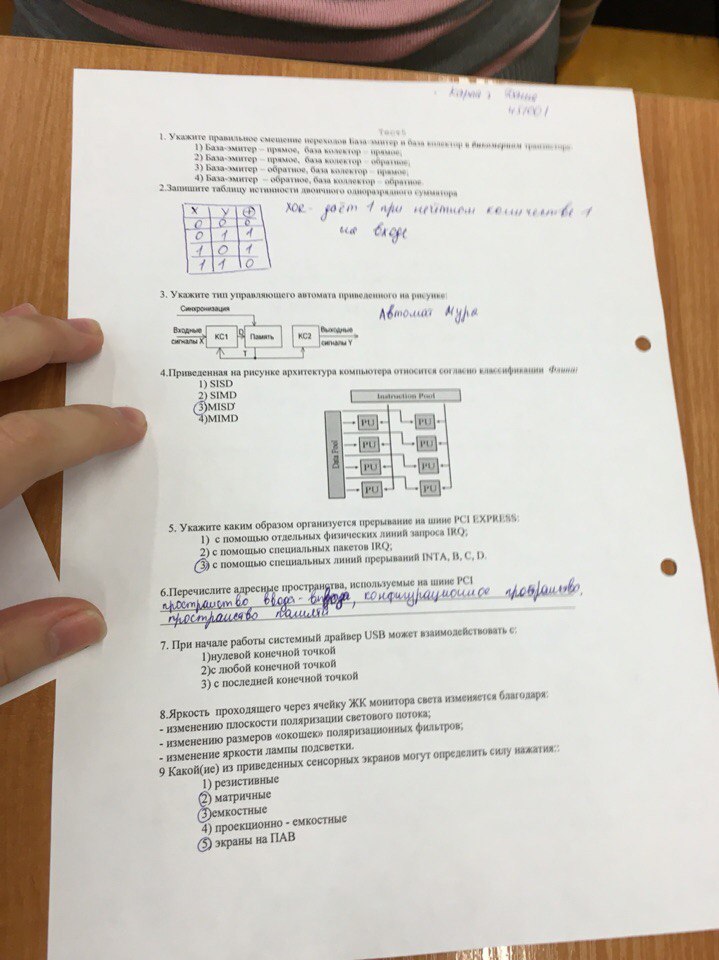 Тест5
1. Укажите правильное смещение переходов База-эмитер и база колектор в биполярном транзисторе.
1) База-эмитер – прямое, база колектор – прямое;
2) База-эмитер – прямое, база колектор – обратное;
3) База-эмитер – обратное, база колектор – прямое;
4) База-эмитер – обратное, база коллектор – обратное.
2.Запишите таблицу истинности двоичного одноразрядного сумматора
X У ⊕
0 0 0
0 1 1
1 0 1
1 1 0
XOR - даёт 1 при нечётном количестве 1
на входе
3. Укажите тип управляющего автомата приведенного на рисунке:
Автомат Мура
Синхронизация
Входные
сигналы X
КС1
D
Память
КС2
Выходные
сигналы Y
T
4.Приведенная на рисунке архитектура компьютера относится согласно классификации Флинна:
1) SISD
2) SIMD
3)MISD
4)MIMD
Instruction Pool
Data Pool
PU PU
PU PU
PU PU
PU PU
5. Укажите каким образом организуется прерывание на шине PCI EXPRESS:
1) с помощью отдельных физических линий запроса IRQ;
2) с помощью специальных пакетов IRQ;
3) с помощью специальных линий прерываний INTA, B, C, D.
6.Перечислите адресные пространства, используемые на шине PCI
пространство ввода-вывода, конфигурационное пространство,
пространство памяти
7. При начале работы системный драйвер USB может взаимодействовать с:
1)нулевой конечной точкой
2)с любой конечной точкой
3) с последней конечной точкой
8.Яркость проходящего через ячейку ЖК монитора света изменяется благодаря:
- изменению плоскости поляризации светового потока;
- изменению размеров «окошек» поляризационных фильтров;
- изменение яркости лампы подсветки.
9 Какой(ие) из приведенных сенсорных экранов могут определить силу нажатия::
1) резистивные
2) матричные
3)емкостные
4) проекционно - емкостные
5) экраны на ПАВ